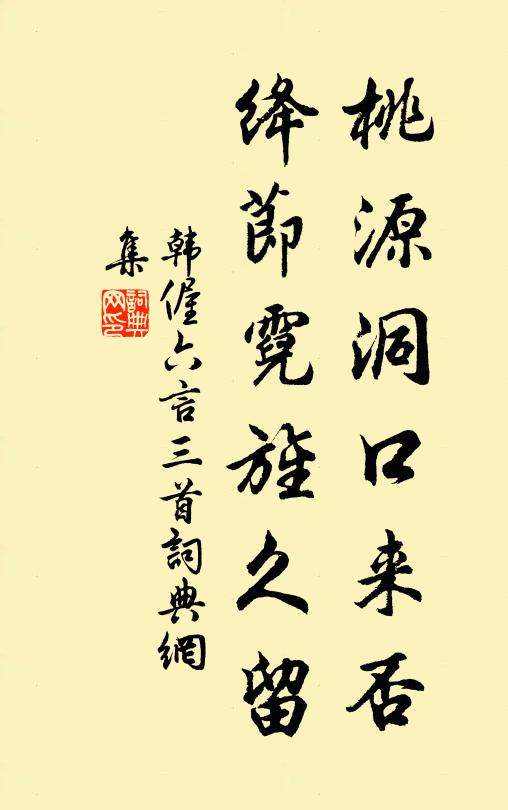 桃源洞口来否
绛節霓旌久留
韓偓六言三首詞典網
集
詞典
网印